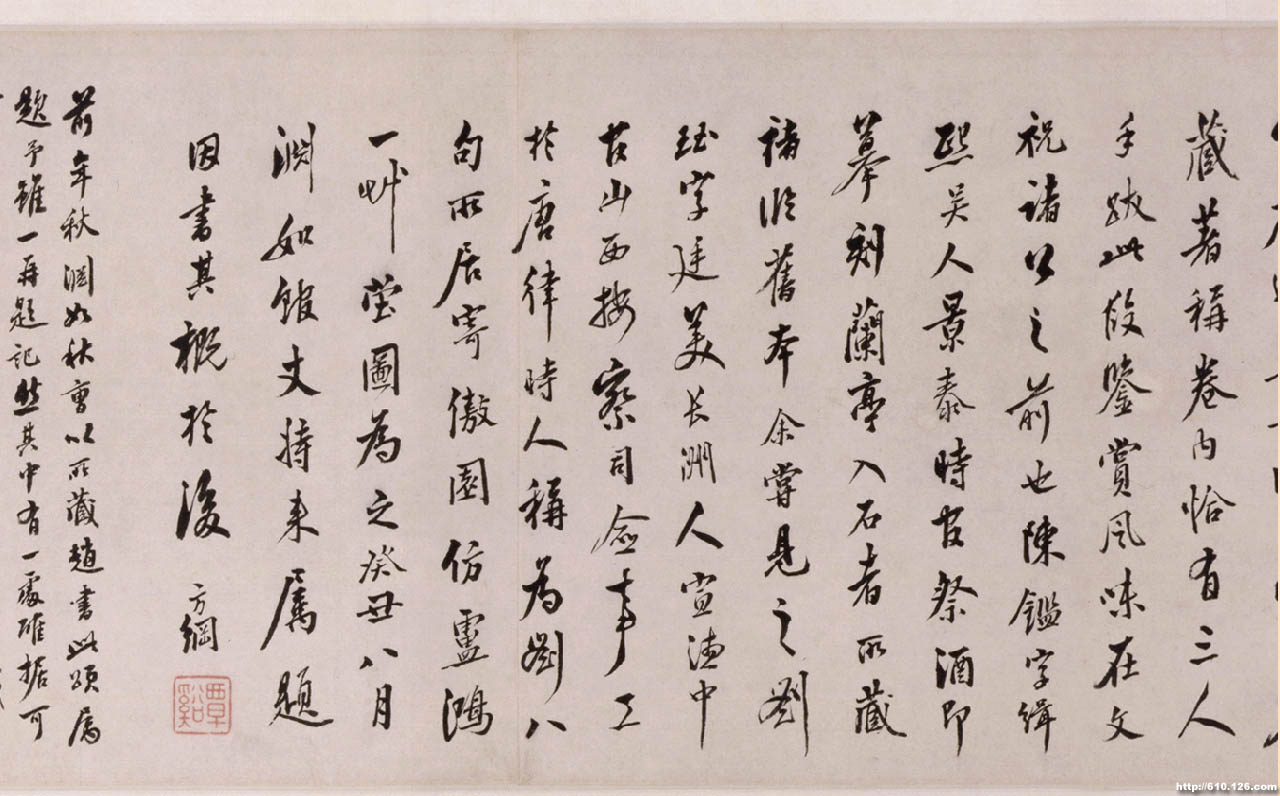 藏著稱卷内恰有三人
手跋此段鑒賞風味在文
祝諸公之前也陳鑑字緝
熙吳人景泰時官祭酒即
摹刻蘭亭入石者所藏
褚臨舊本余嘗見之劉
珏字廷美长洲人宣德中
官山西按察司僉事工
於唐律時人稱為劉八
句所居寄傲園仿盧鴻
一艸堂圖為之癸丑八月
淵如館丈持来属題
因書其概於後
方綱
覃谿
前年秋淵如秋曹以所藏趙書此頌属
題予雖一再題記然其中有一處確据可
http://610.126.com